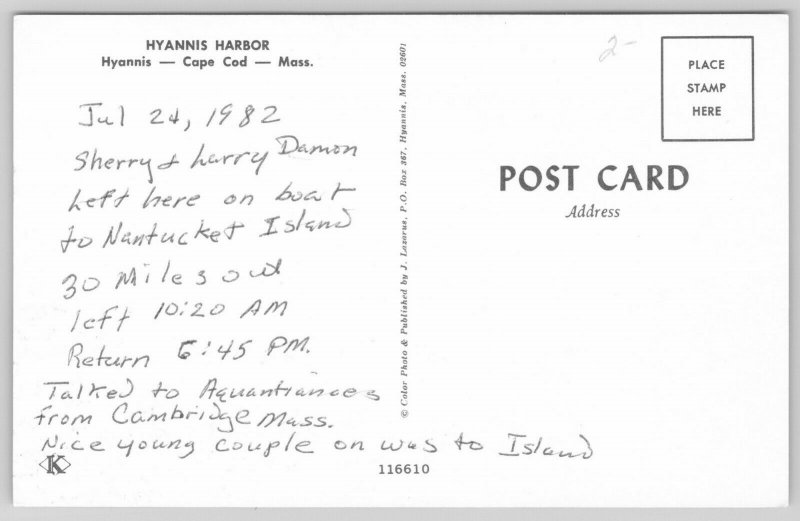 HYANNIS HARBOR
Hyannis — Cape Cod — Mass.
Jul 24, 1982
Sherry & Larry Damon
Left here on boat
to Nantucket Island
30 Miles out
left 10:20 AM
Return 6:45 PM.
Talked to Aquantiances
from Cambridge Mass.
Nice young couple on was to Island
K
116610
© Color Photo & Published by J. Lazarus, P.O. Box 367, Hyannis, Mass. 02601
2-
PLACE
STAMP
HERE
POST CARD
Address